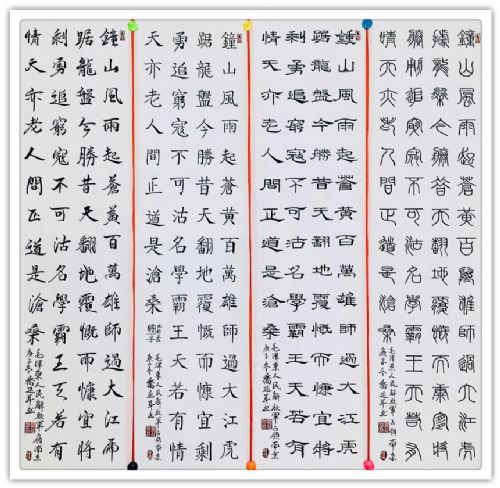 鐘山風雨起蒼黃百萬雄師過大江虎
踞龍盤今勝昔天翻地覆慨而慷宜將
剩勇追窮寇不可沽名學霸王天若有
情天亦老人間正道是滄桑
毛澤東人民解放軍占領南京
鍾山風雨起蒼黃百萬雄師過大江虎
踞龍盤今勝昔天翻地覆慨而慷宜將
剩勇追窮寇不可沽名學霸王天若有
情天亦老人間正道是滄桑
毛澤東人民解放軍占領南京
鐘山風雨起蒼黃百萬雄師過大江虎
踞龍盤今勝昔天翻地覆慨而慷宜剩
勇追窮寇不可沽名學霸王天若有情
天亦老人間正道是滄桑
毛澤東人民解放軍占領南京
鐘山風雨起蒼黃百萬雄師過大江虎
踞龍盤今勝昔天翻地覆慨而慷宜將
剩勇追窮寇不可沽名學霸王天若有
情天亦老人間正道是滄桑
毛澤東人民解放軍占領南京